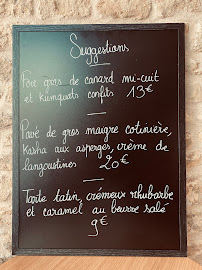 Suggestions
Foie gras de canard mi-cuit
et kumquats confits 13€
Pavé de gros maigre cotinière,
kasha aux asperges, crème de
langoustines 20€
Tarte tatin, crémeux rhubarbe
et caramel au beurre salé
9€